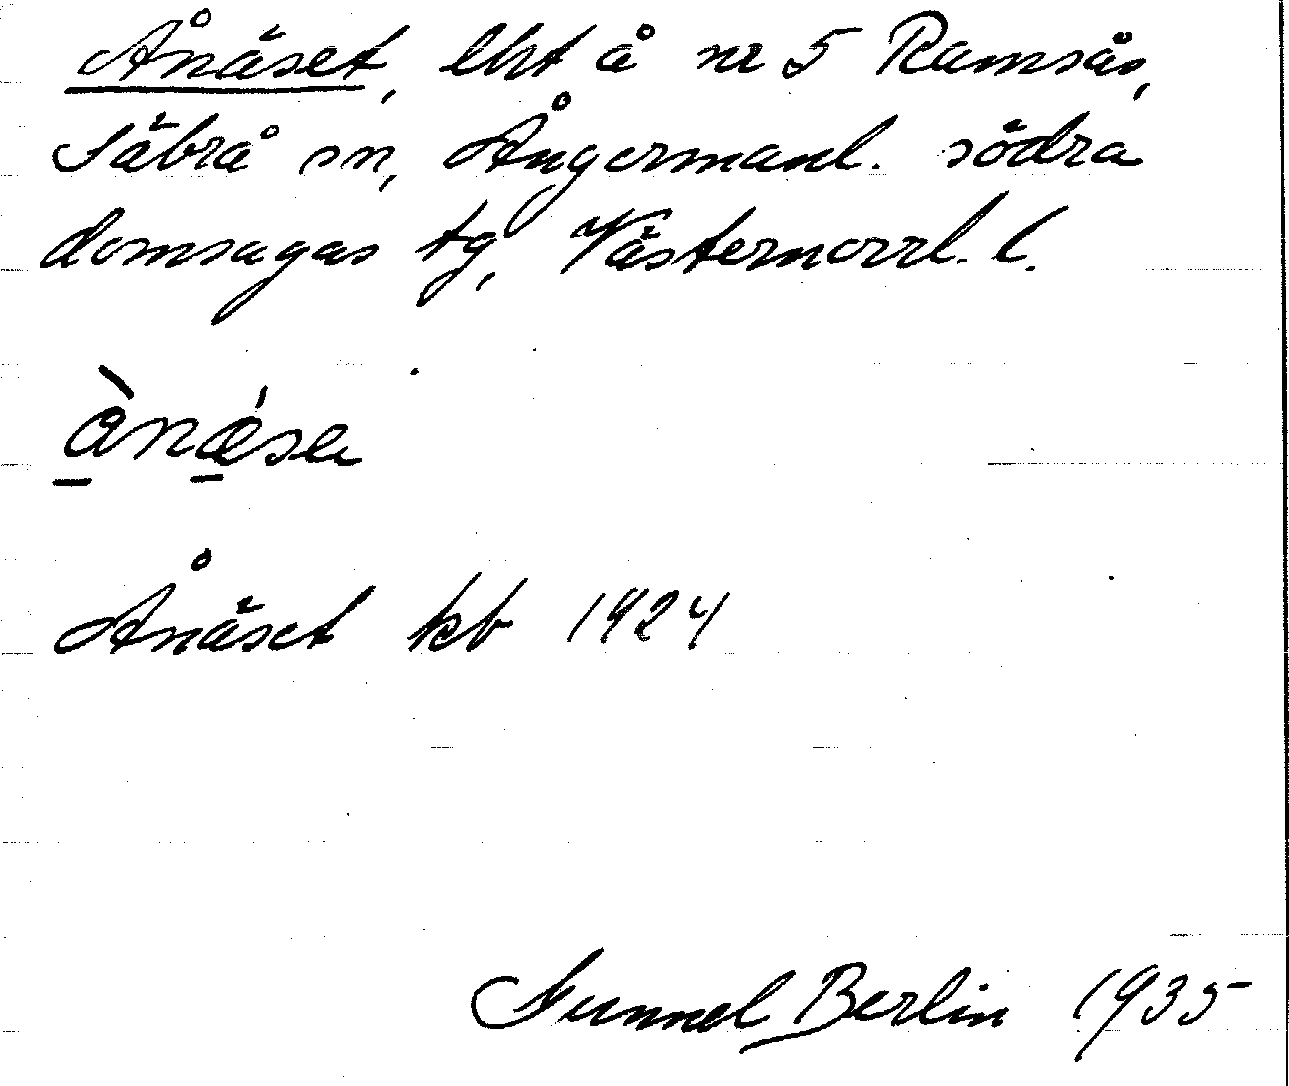 Ånäset, lht å nr 5 Ramsås,
Säbrå sn, Ångermanl. södra
domsagas tg, Västernorrl. l.
ànǽsen
Ånäset kb 1924
Gunnel Berlin 1935